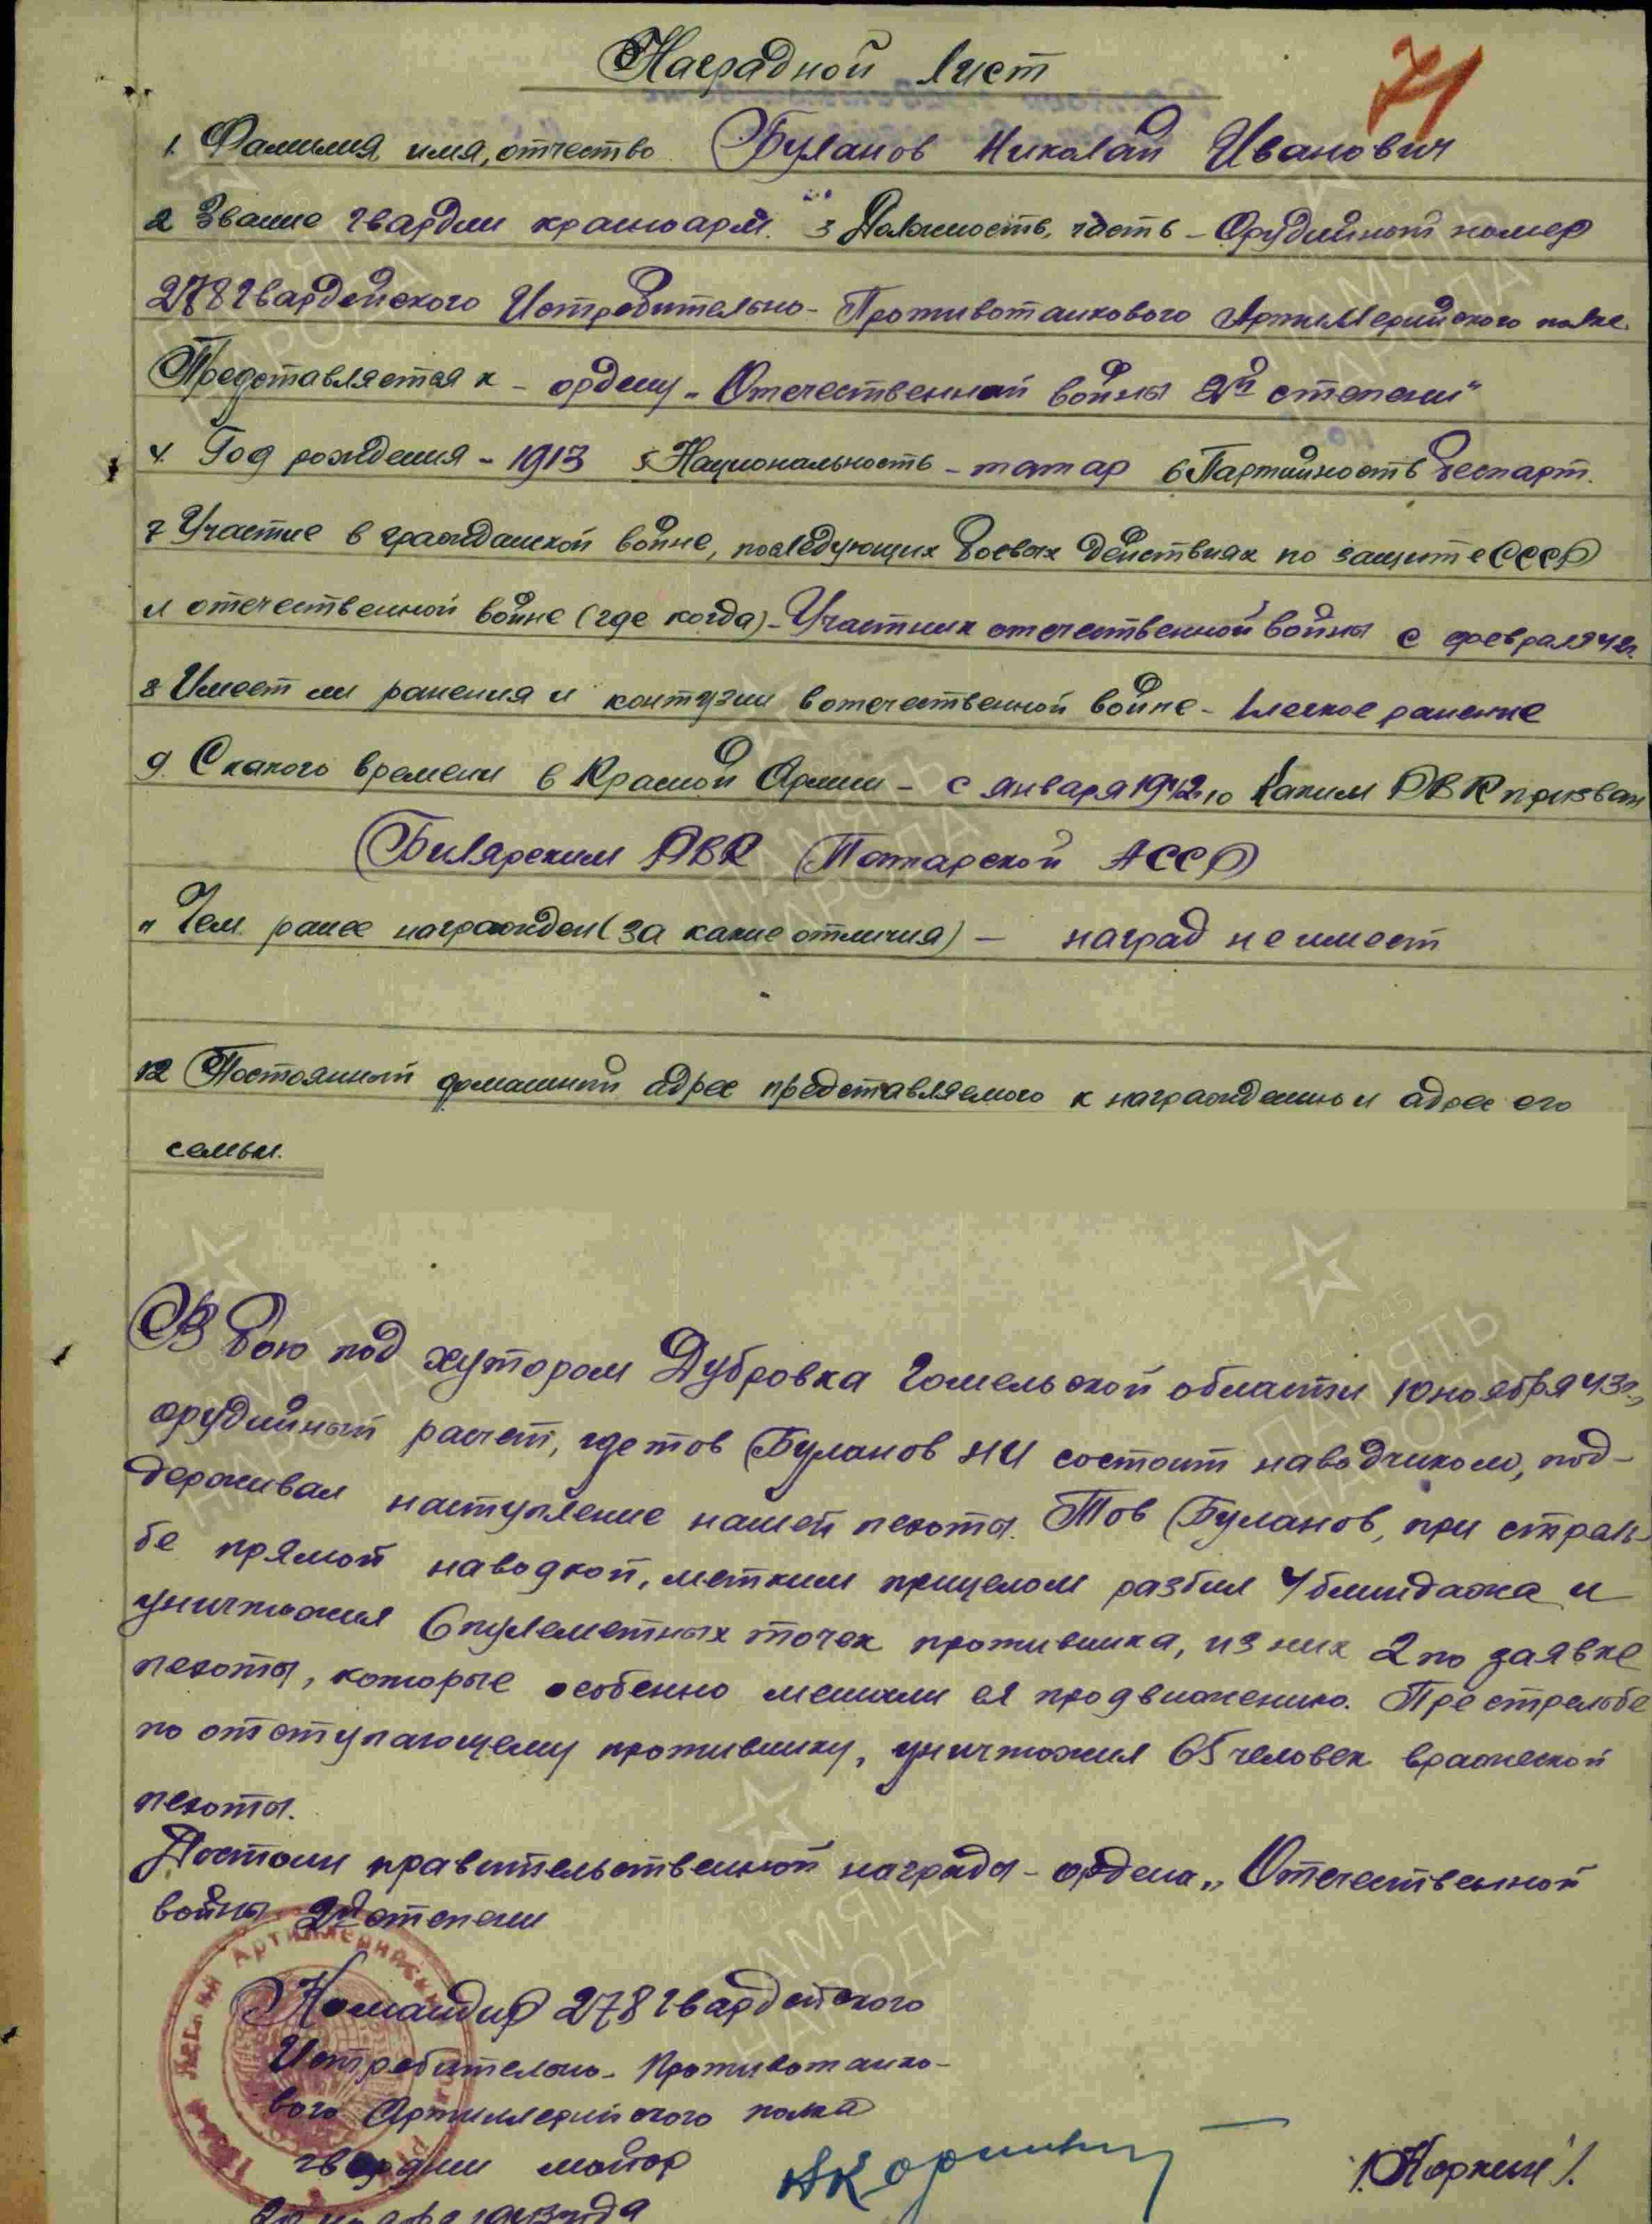 Наградной лист
71
1. Фамилия, имя, отчество Буланов Николай Иванович
2 Звание гвардии красноарм. 3 Должность, часть - Орудийный номер
278 Гвардейского Истребительно-Противотанкового Артиллерийского полка.
Представляется к - ордену "Отечественной войны 2й степени"
4. Год рождения - 1913 5 Национальность - татар 6 Партийность беспарт.
7 Участие в гражданской войне, последующих боевых действиях по защите СССР
и отечественной войне (где когда) - Участник отечественной войны с февраля 42г.
8 Имеет ли ранения и контузии в отечественной войне - 1 легкое ранение
9. С какого времени в Красной Армии - с января 1942 10 Каким РВК призван
Билярским РВК Татарской АССР
11 Чем ранее награжден (за какие отличия) - наград не имеет
12 Постоянный домашний адрес представляемого к награждению и адрес его
семьи.
В бою под хутором Дубровка Гомельской области 10 ноября 43г.,
орудийный расчет, где тов Буланов НИ состоит наводчиком, под-
держивал наступление нашей пехоты. Тов Буланов, при стрель-
бе прямой наводкой, метким прицелом разбил 4 блиндажа и
уничтожил 6 пулеметных точек противника, из них 2 по заявке
пехоты, которые особенно мешали ея продвижению. Пре стрельбе
по отступающему противнику, уничтожил 65 человек вражеской
пехоты.
Достоин правительственной награды - ордена "Отечественной
войны 2й степени
Командир 278 Гвардейского
Истребительно-Противотанко-
вого Артиллерийского полка
гвардии майор
/Коркин/.
1943 года
ПАМЯТЬ
НАРОДА
1941-1945